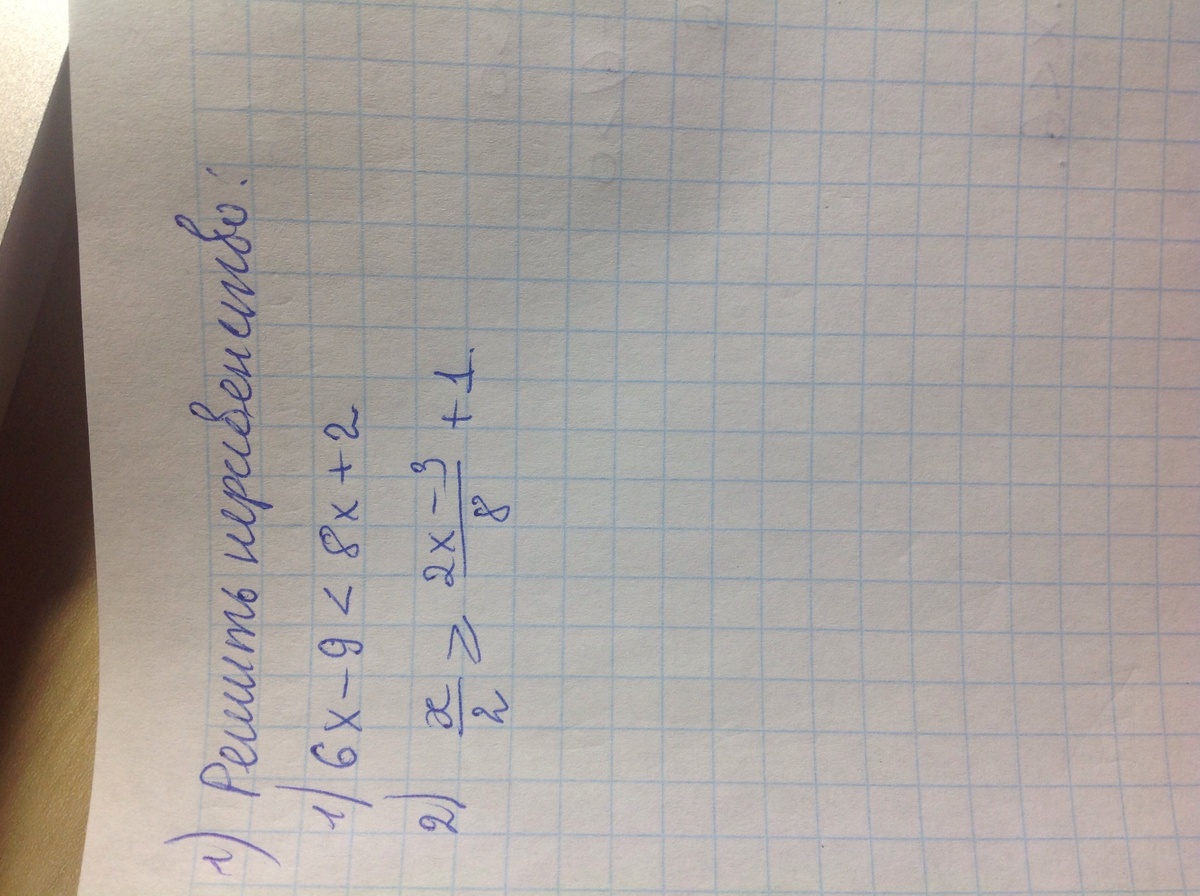 1) Решить неравенство:
1) 6x - 9 < 8x + 2
2) x/2 ⩾ (2x - 3)/8 + 1